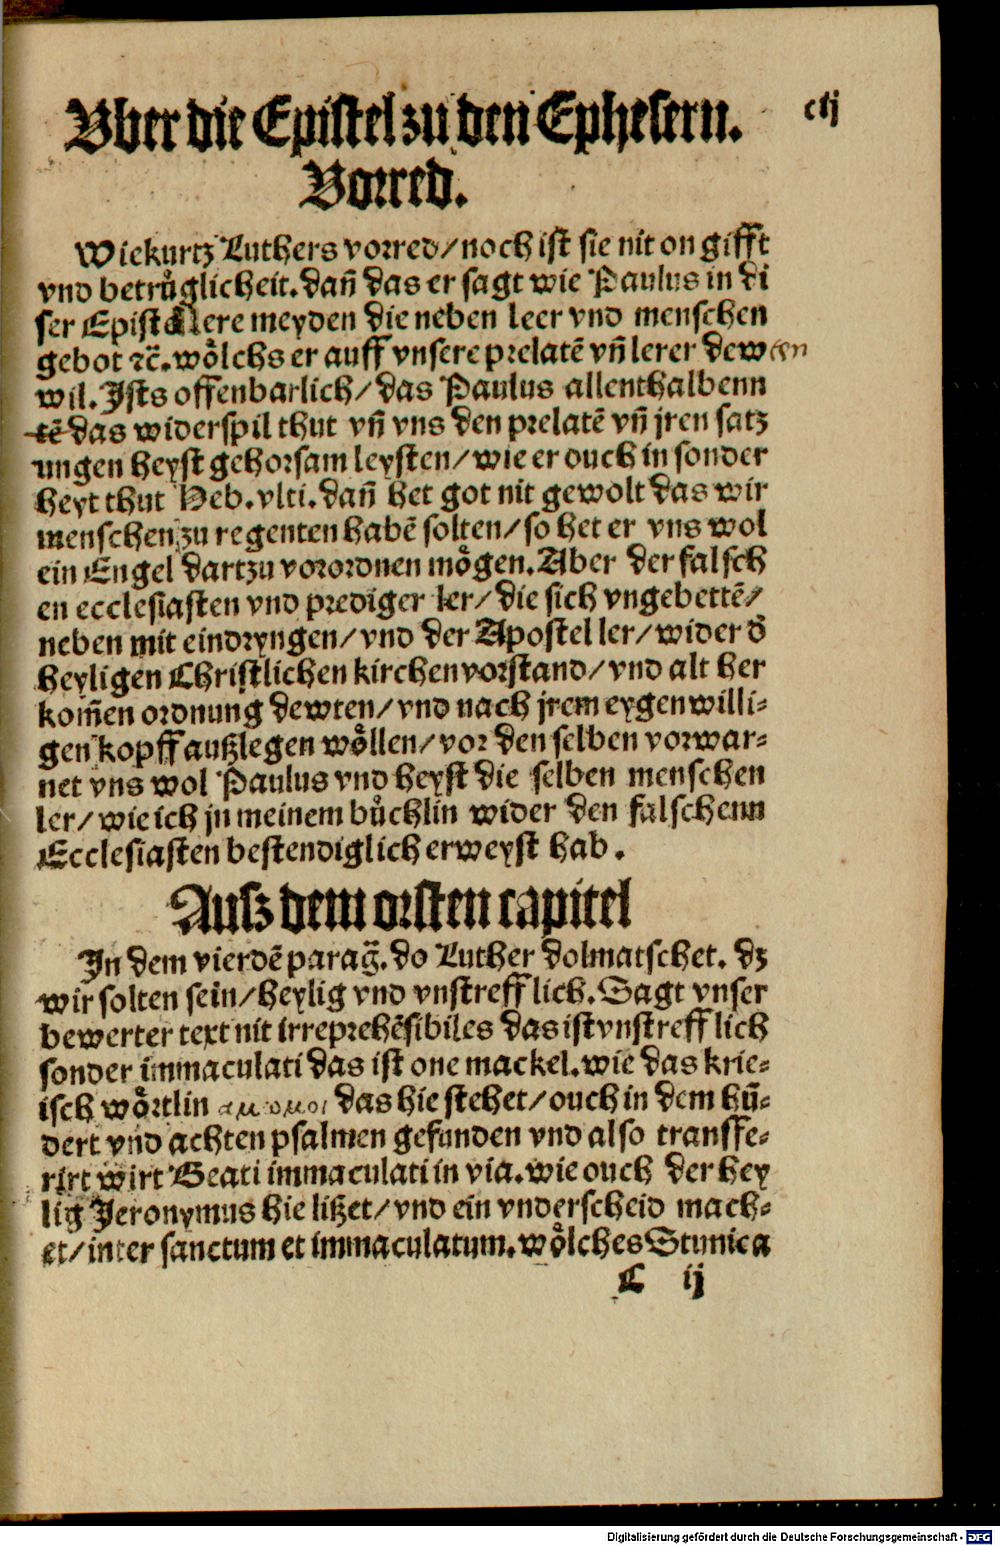 Vber die Epistel zu den Ephesern.
clj
Vorred.
Wie kurtz Luthers vorred/ noch ist sie nit on gifft
vnd betrůglicheit. dañ das er sagt wie Paulus in di
ser Epistel lere meyden die neben leer vnd menschen
gebot ꝛc̄. wőlchs er auff vnsere prelatē vñ lerer dewten
wil. Ists offenbarlich/ das Paulus allenthalbenn
tē das widerspil thut vñ vns den prelatē vñ jren satz
ungen heyst gehorsam leysten/ wie er ouch in sonder
heyt thut Heb. vlti. dañ het got nit gewolt das wir
menschen zu regenten habē solten/ so het er vns wol
ein Engel dartzu vorordnen mőgen. Aber der falsch
en ecclesiasten vnd prediger ler/ die sich vngebettē/
neben mit eindryngen/ vnd der Apostel ler/ wider d̄
heyligen Christlichen kirchen vorstand/ vnd alt her
kom̄en ordnung dewten/ vnd nach jrem eygen willi-
gen kopff außlegen wőllen/ vor den selben vorwar-
net vns wol Paulus vnd heyst die selben menschen
ler/ wie ich jn meinem bůchlin wider den falschenn
Ecclesiasten bestendiglich erweyst hab.
Ausz dem orsten capitel
In dem vierdē parag̃. do Luther dolmatschet. dz
wir solten sein/ heylig vnd vnstrefflich. Sagt vnser
bewerter text nit irreprehēsibiles das ist vnstrefflich
sonder immaculati das ist one mackel. wie das krie-
isch wőrtlin αμομοι das hie stehet/ ouch in dem hū-
dert vnd achten psalmen gefunden vnd also transfe-
rirt wirt Beati immaculati in via. wie ouch der hey
lig Jeronymus hie lißet/ vnd ein vnderscheid mach-
et/ inter sanctum et immaculatum. wőlches Stunica
C ij
Digitalisierung gefördert durch die Deutsche Forschungsgemeinschaft - DFG